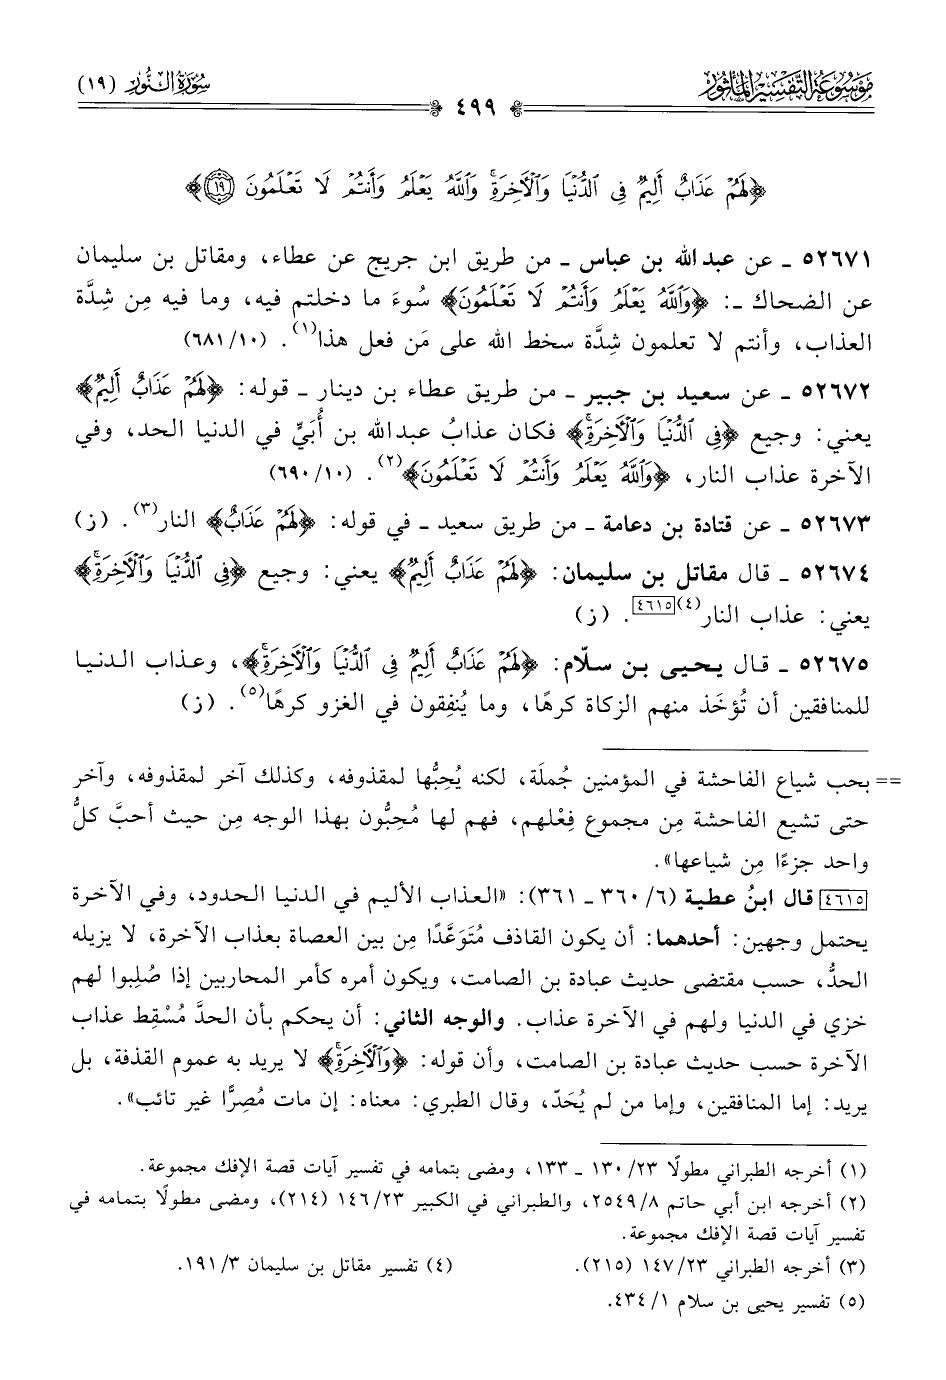 مَوْسُوعَة التَّفْسِير المَأْثُور
سُورَةُ النُّور (١٩)
٤٩٩
﴿لَهُمْ عَذَابٌ أَلِيمٌ فِي الدُّنْيَا وَالْآخِرَةِ ۚ وَاللَّهُ يَعْلَمُ وَأَنتُمْ لَا تَعْلَمُونَ ۝١٩﴾
٥٢٦٧١ ـ عن عبد الله بن عباس ـ من طريق ابن جريج عن عطاء، ومقاتل بن سليمان
عن الضحاك ـ: ﴿وَاللَّهُ يَعْلَمُ وَأَنتُمْ لَا تَعْلَمُونَ﴾ سُوءَ ما دخلتم فيه، وما فيه مِن شِدَّة
العذاب، وأنتم لا تعلمون شِدَّة سخط الله على مَن فعل هذا(١). (١٠/ ٦٨١)
٥٢٦٧٢ ـ عن سعيد بن جبير ـ من طريق عطاء بن دينار ـ قوله: ﴿لَهُمْ عَذَابٌ أَلِيمٌ﴾
يعني: وجيع ﴿فِي الدُّنْيَا وَالْآخِرَةِ ۚ﴾ فكان عذابُ عبدالله بن أُبَيٍّ في الدنيا الحد، وفي
الآخرة عذاب النار، ﴿وَاللَّهُ يَعْلَمُ وَأَنتُمْ لَا تَعْلَمُونَ﴾(٢). (١٠/ ٦٩٠)
٥٢٦٧٣ ـ عن قتادة بن دعامة ـ من طريق سعيد ـ في قوله: ﴿لَهُمْ عَذَابٌ﴾ النار(٣). (ز)
٥٢٦٧٤ ـ قال مقاتل بن سليمان: ﴿لَهُمْ عَذَابٌ أَلِيمٌ﴾ يعني: وجيع ﴿فِي الدُّنْيَا وَالْآخِرَةِ ۚ﴾
يعني: عذاب النار(٤)[٤٦١٥]. (ز)
٥٢٦٧٥ ـ قال يحيى بن سلّام: ﴿لَهُمْ عَذَابٌ أَلِيمٌ فِي الدُّنْيَا وَالْآخِرَةِ ۚ﴾، وعذاب الدنيا
للمنافقين أن تُؤخَذ منهم الزكاة كرهًا، وما يُنفِقون في الغزو كرهًا(٥). (ز)
== بحب شياع الفاحشة في المؤمنين جُملَة، لكنه يُحِبُّها لمقذوفه، وكذلك آخر لمقذوفه، وآخر
حتى تشيع الفاحشة مِن مجموع فِعْلهم، فهم لها مُحِبُّون بهذا الوجه مِن حيث أحبَّ كلُّ
واحد جزءًا مِن شياعها».
[٤٦١٥] قال ابنُ عطية (٦/ ٣٦٠ ـ ٣٦١): «العذاب الأليم في الدنيا الحدود، وفي الآخرة
يحتمل وجهين: أحدهما: أن يكون القاذف مُتَوَعَّدًا مِن بين العصاة بعذاب الآخرة، لا يزيله
الحدُّ، حسب مقتضى حديث عبادة بن الصامت، ويكون أمره كأمر المحاربين إذا صُلِبوا لهم
خزي في الدنيا ولهم في الآخرة عذاب. والوجه الثاني: أن يحكم بأن الحدَّ مُسْقِط عذاب
الآخرة حسب حديث عبادة بن الصامت، وأن قوله: ﴿وَالْآخِرَةِ ۚ﴾ لا يريد به عموم القذفة، بل
يريد: إما المنافقين، وإما من لم يُحَدّ، وقال الطبري: معناه: إن مات مُصِرًّا غير تائب».
(١) أخرجه الطبراني مطولًا ٢٣/ ١٣٠ ـ ١٣٣، ومضى بتمامه في تفسير آيات قصة الإفك مجموعة.
(٢) أخرجه ابن أبي حاتم ٨/ ٢٥٤٩، والطبراني في الكبير ٢٣/ ١٤٦ (٢١٤)، ومضى مطولًا بتمامه في
تفسير آيات قصة الإفك مجموعة.
(٣) أخرجه الطبراني ٢٣/ ١٤٧ (٢١٥).
(٤) تفسير مقاتل بن سليمان ٣/ ١٩١.
(٥) تفسير يحيى بن سلام ١/ ٤٣٤.